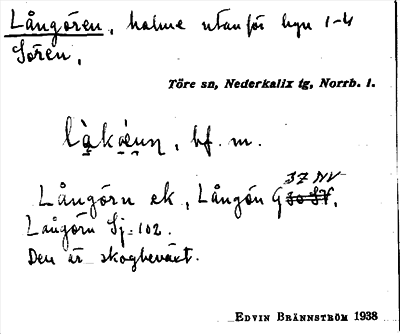 Långören, holme utanför byn 1-4
Sören.
Töre sn, Nederkalix tg, Norrb. l.
bf. m.
37 NV
Långörn ek, Långön G 30 SV.
Långörn Sj=102.
Den är skogbeväxt.
EDVIN BRÄNNSTRÖM 1938